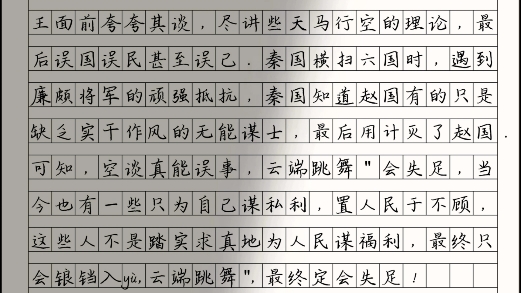 王面前夸夸其谈，尽讲些天马行空的理论，最
后误国误民甚至误己．秦国横扫六国时，遇到
廉颇将军的顽强抵抗，秦国知道赵国有的只是
缺乏实干作风的无能谋士，最后用计灭了赵国．
可知，空谈真能误事，云端跳舞"会失足，当
今也有一些只为自己谋私利，置人民于不顾，
这些人不是踏实求真地为人民谋福利，最终只
会锒铛入yù,云端跳舞",最终定会失足！